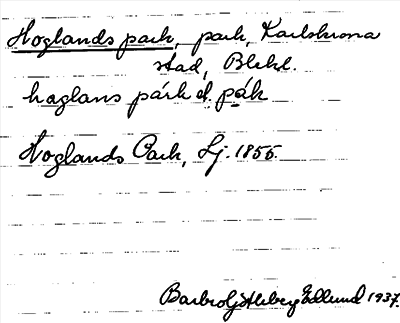 Hoglands park, park, Karlskrona
stad, Blekl.
haglans párk el. pák
Hoglands Park, Lj. 1855.
Edlund 1937.